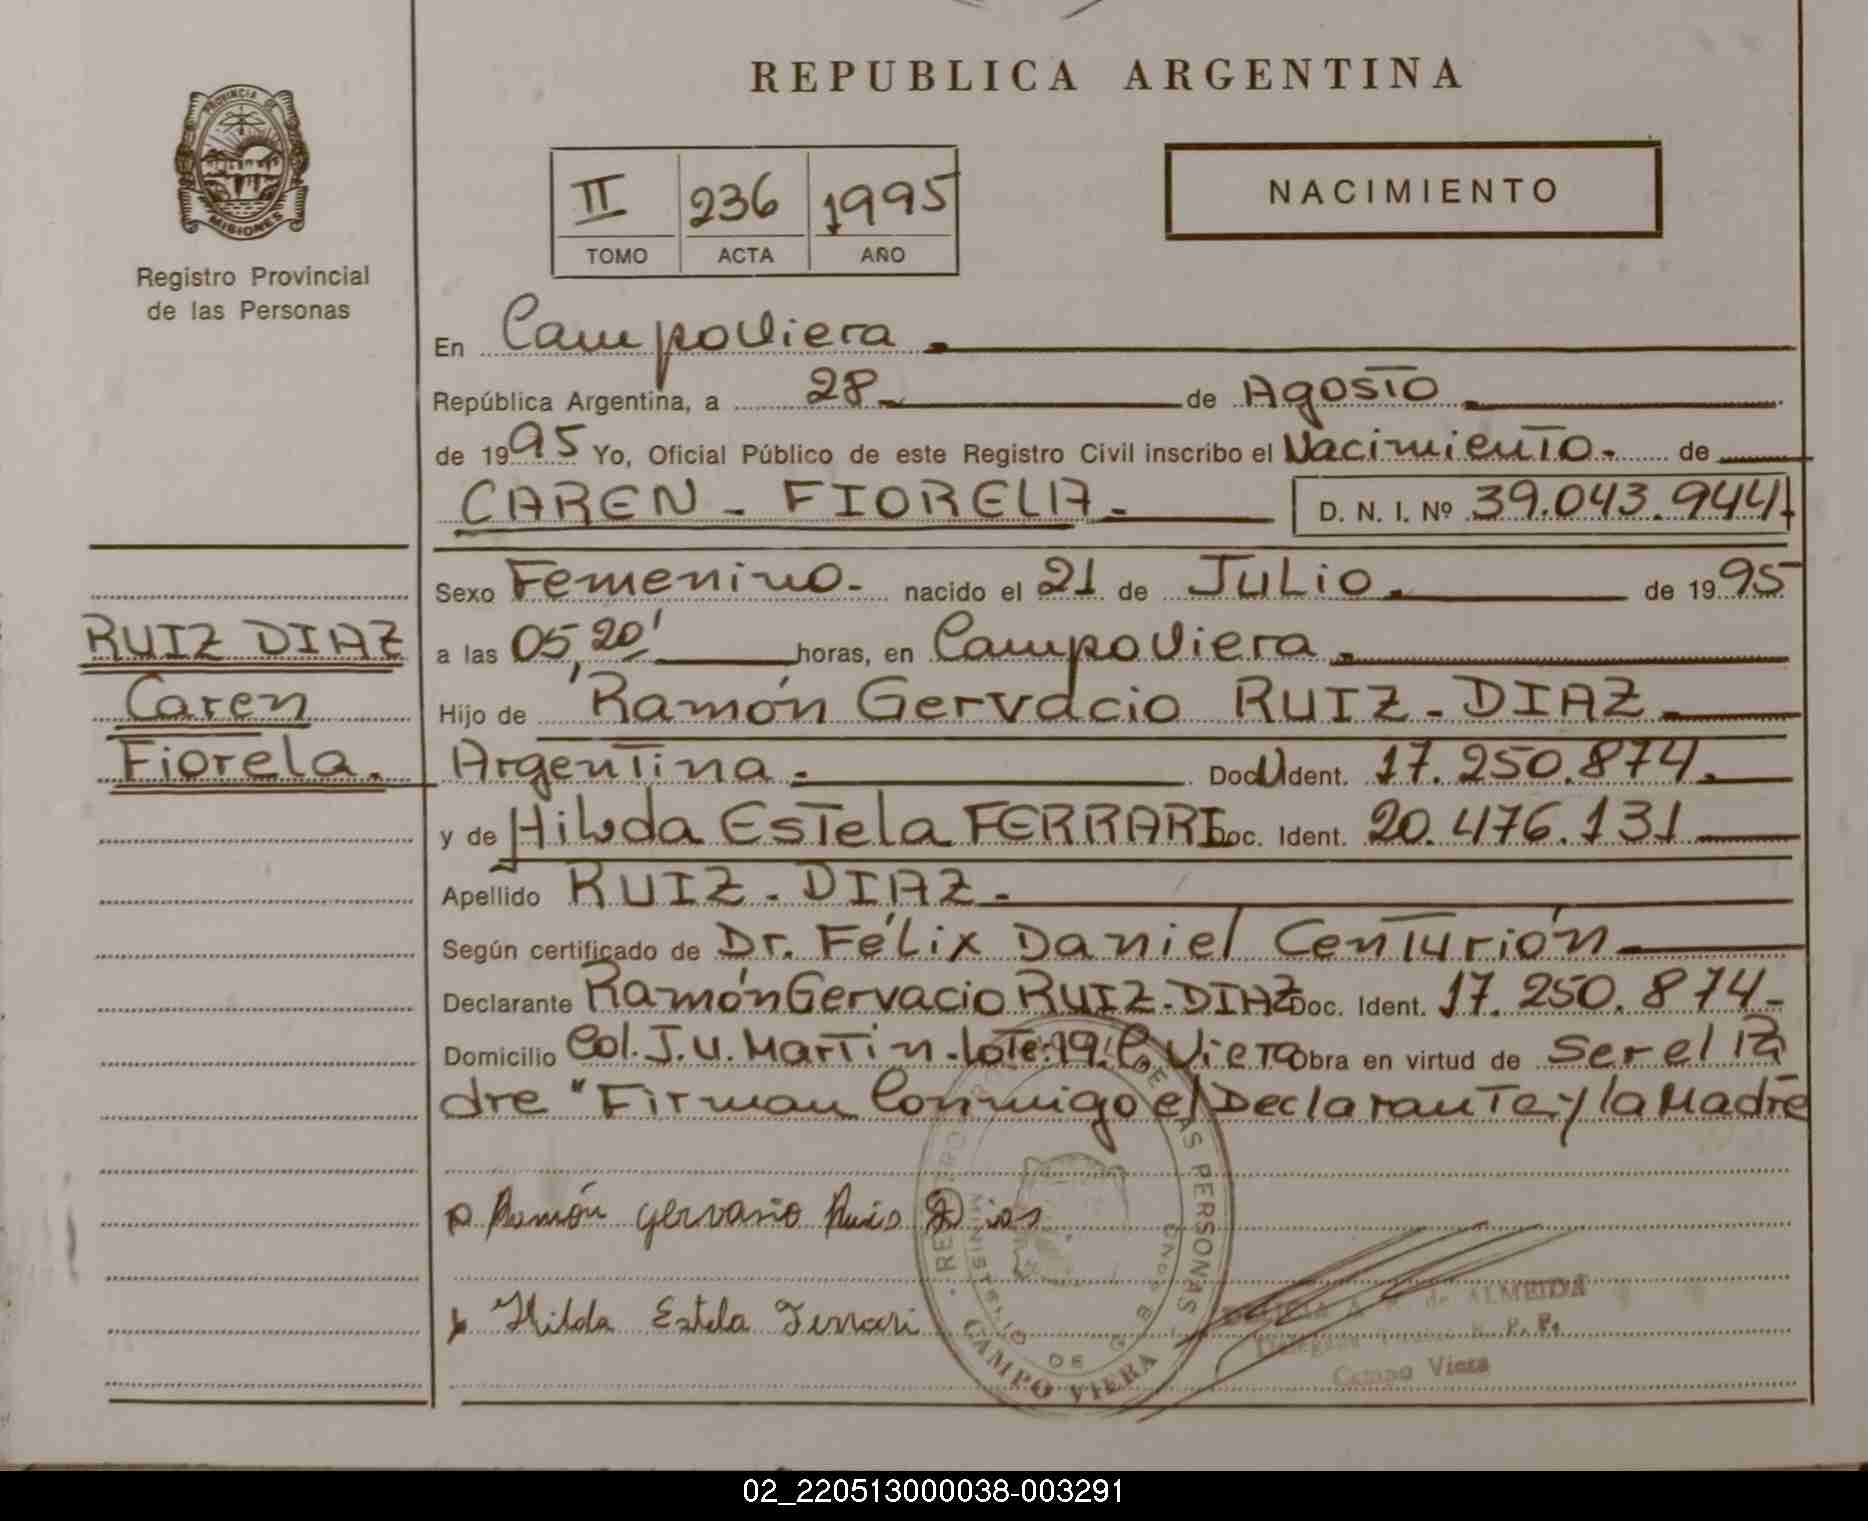 REPUBLICA ARGENTINA
PROVINCIA DE
MISIONES
Registro Provincial
de las Personas
II 236 1995
TOMO ACTA AÑO
NACIMIENTO
En Campo Viera.
República Argentina, a 28 de Agosto
de 1995 Yo, Oficial Público de este Registro Civil inscribo el Nacimiento. de
CAREN - FIORELA - D. N. I. Nº 39.043.944
Sexo Femenino- nacido el 21 de Julio. de 1995
a las 05,20' horas, en Campo Viera.
Hijo de Ramón Gervacio RUIZ-DIAZ
Argentina. Doc U Ident. 17.250.874.
y de Hilda Estela FERRARI Doc. Ident. 20.476.131
Apellido RUIZ-DIAZ-
Según certificado de Dr. Félix Daniel Centurión
Declarante Ramón Gervacio RUIZ-DIAZ Doc. Ident. 17.250.874-
Domicilio Col. J.U. Martin-Lote:19. C. Viera Obra en virtud de Ser el Pa
dre "Firman Conmigo el Declarante y la Madre
RUIZ DIAZ
Caren
Fiorela.
Ramón Gervasio Ruis Dias
Hilda Estela Ferrari
DE LAS PERSONAS
MINISTERIO DE
CAMPO VIERA
de ALMEIDA
R. P. P.
Campo Viera
02_220513000038-003291